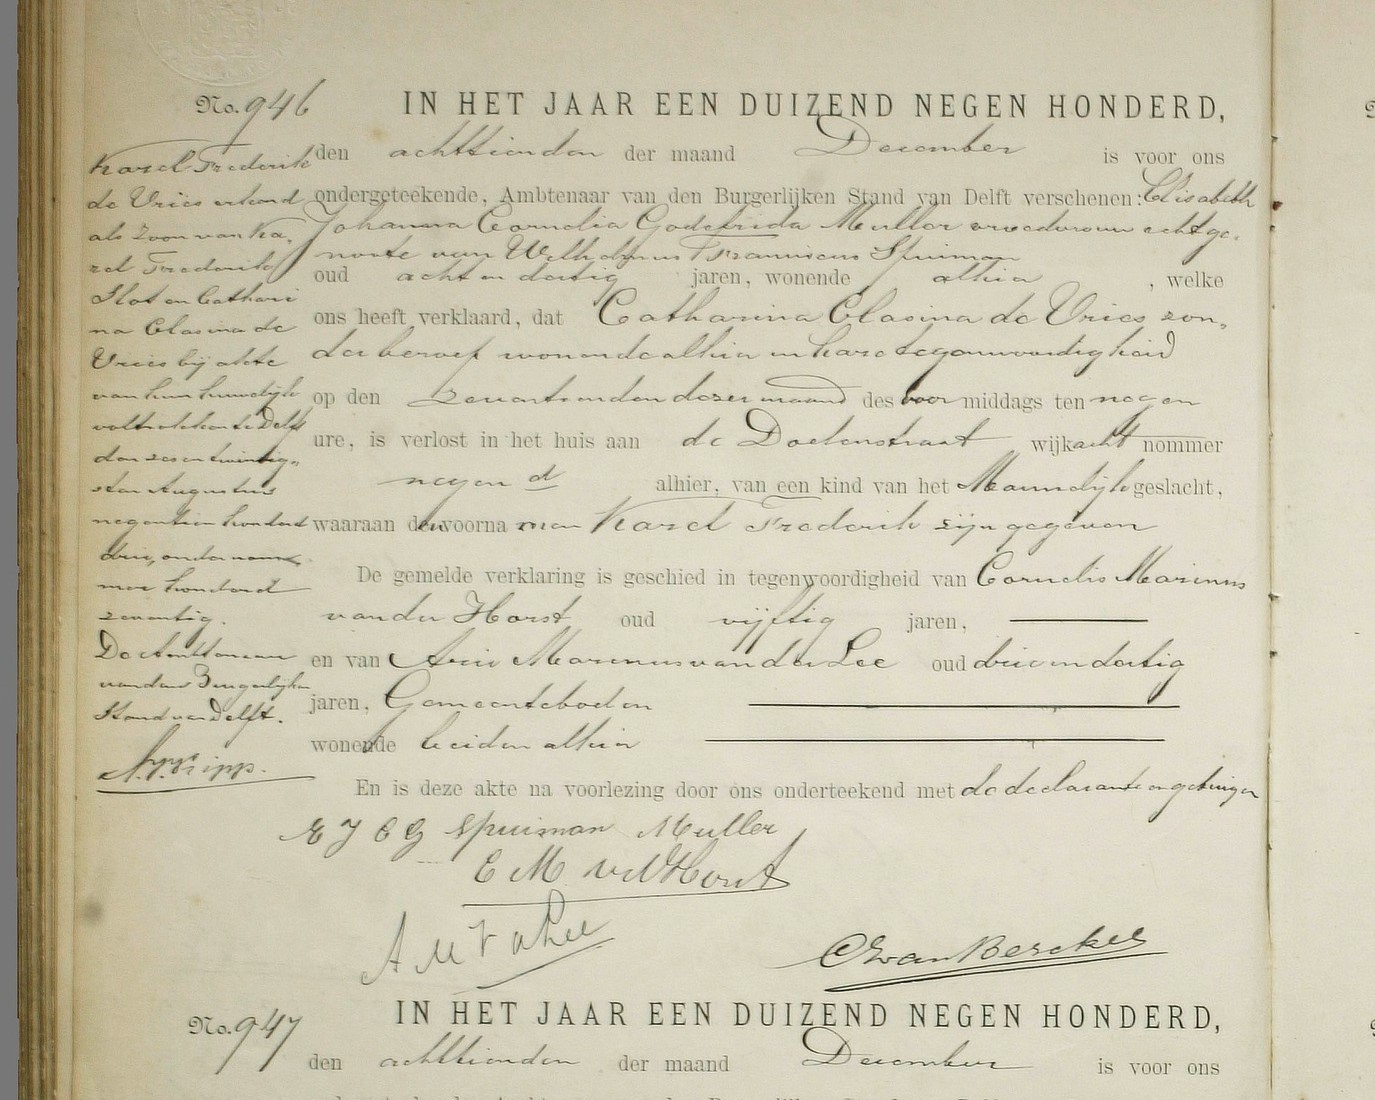 No. 946
IN HET JAAR EEN DUIZEND NEGEN HONDERD,
den achttienden der maand December is voor ons
ondergeteekende, Ambtenaar van den Burgerlijken Stand van Delft verschenen: Elisabeth
Johanna Cornelia Godefrida Muller vroedvrouw echtge-
noote van Wilhelmus Franciscus Spuiman
oud acht en dertig jaren, wonende alhier, welke
ons heeft verklaard, dat Catharina Clasina de Vries zon-
der beroep wonende alhier in hare tegenwoordigheid
op den zeventienden dezer maand des voor middags ten negen
ure, is verlost in het huis aan de Doelenstraat wijk acht nommer
negen d alhier, van een kind van het Mannelijk geslacht,
waaraan de voornamen Karel Frederik zijn gegeven
De gemelde verklaring is geschied in tegenwoordigheid van Cornelis Marinus
van der Horst oud vijftig jaren,
en van Arie Marinus van der Lee oud drie en dertig
jaren, Gemeenteboden
wonende beiden alhier
En is deze akte na voorlezing door ons onderteekend met de declarante en getuigen
E J C G Spuiman Muller
C M vd Horst
A M v d Lee
C van Berckel
Karel Frederik
de Vries erkend
als zoon van Ka-
rel Frederik
Slot en Cathari
na Clasina de
Vries bij akte
van hun huwelijk
voltrokken te Delft
den zes en twintig-
sten Augustus
negentien honderd
drie, onder nom-
mer honderd
zeventig.
De Ambtenaar
van den Burgerlijken
Stand van Delft.
No. 947
IN HET JAAR EEN DUIZEND NEGEN HONDERD,
den achttienden der maand December is voor ons